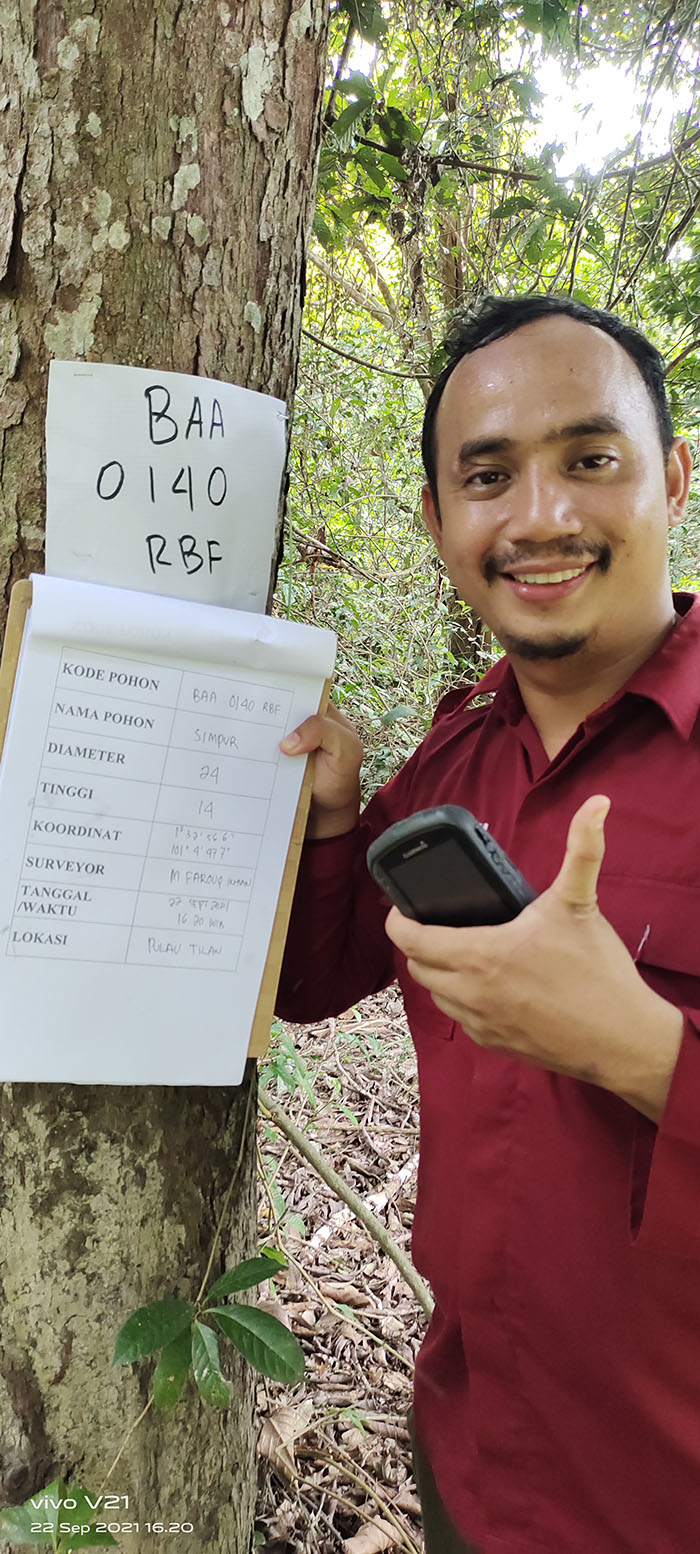 BAA
0140
RBF
KODE POHON BAA 0140 RBF
NAMA POHON SIMPUR
DIAMETER 24
TINGGI 14
KOORDINAT
101° 4' 47.7"
SURVEYOR M FAROUQ
TANGGAL 22 SEPT 2021
/WAKTU 16 20 WIB
LOKASI PULAU TILAN
GARMIN
vivo V21
22 Sep 2021 16.20